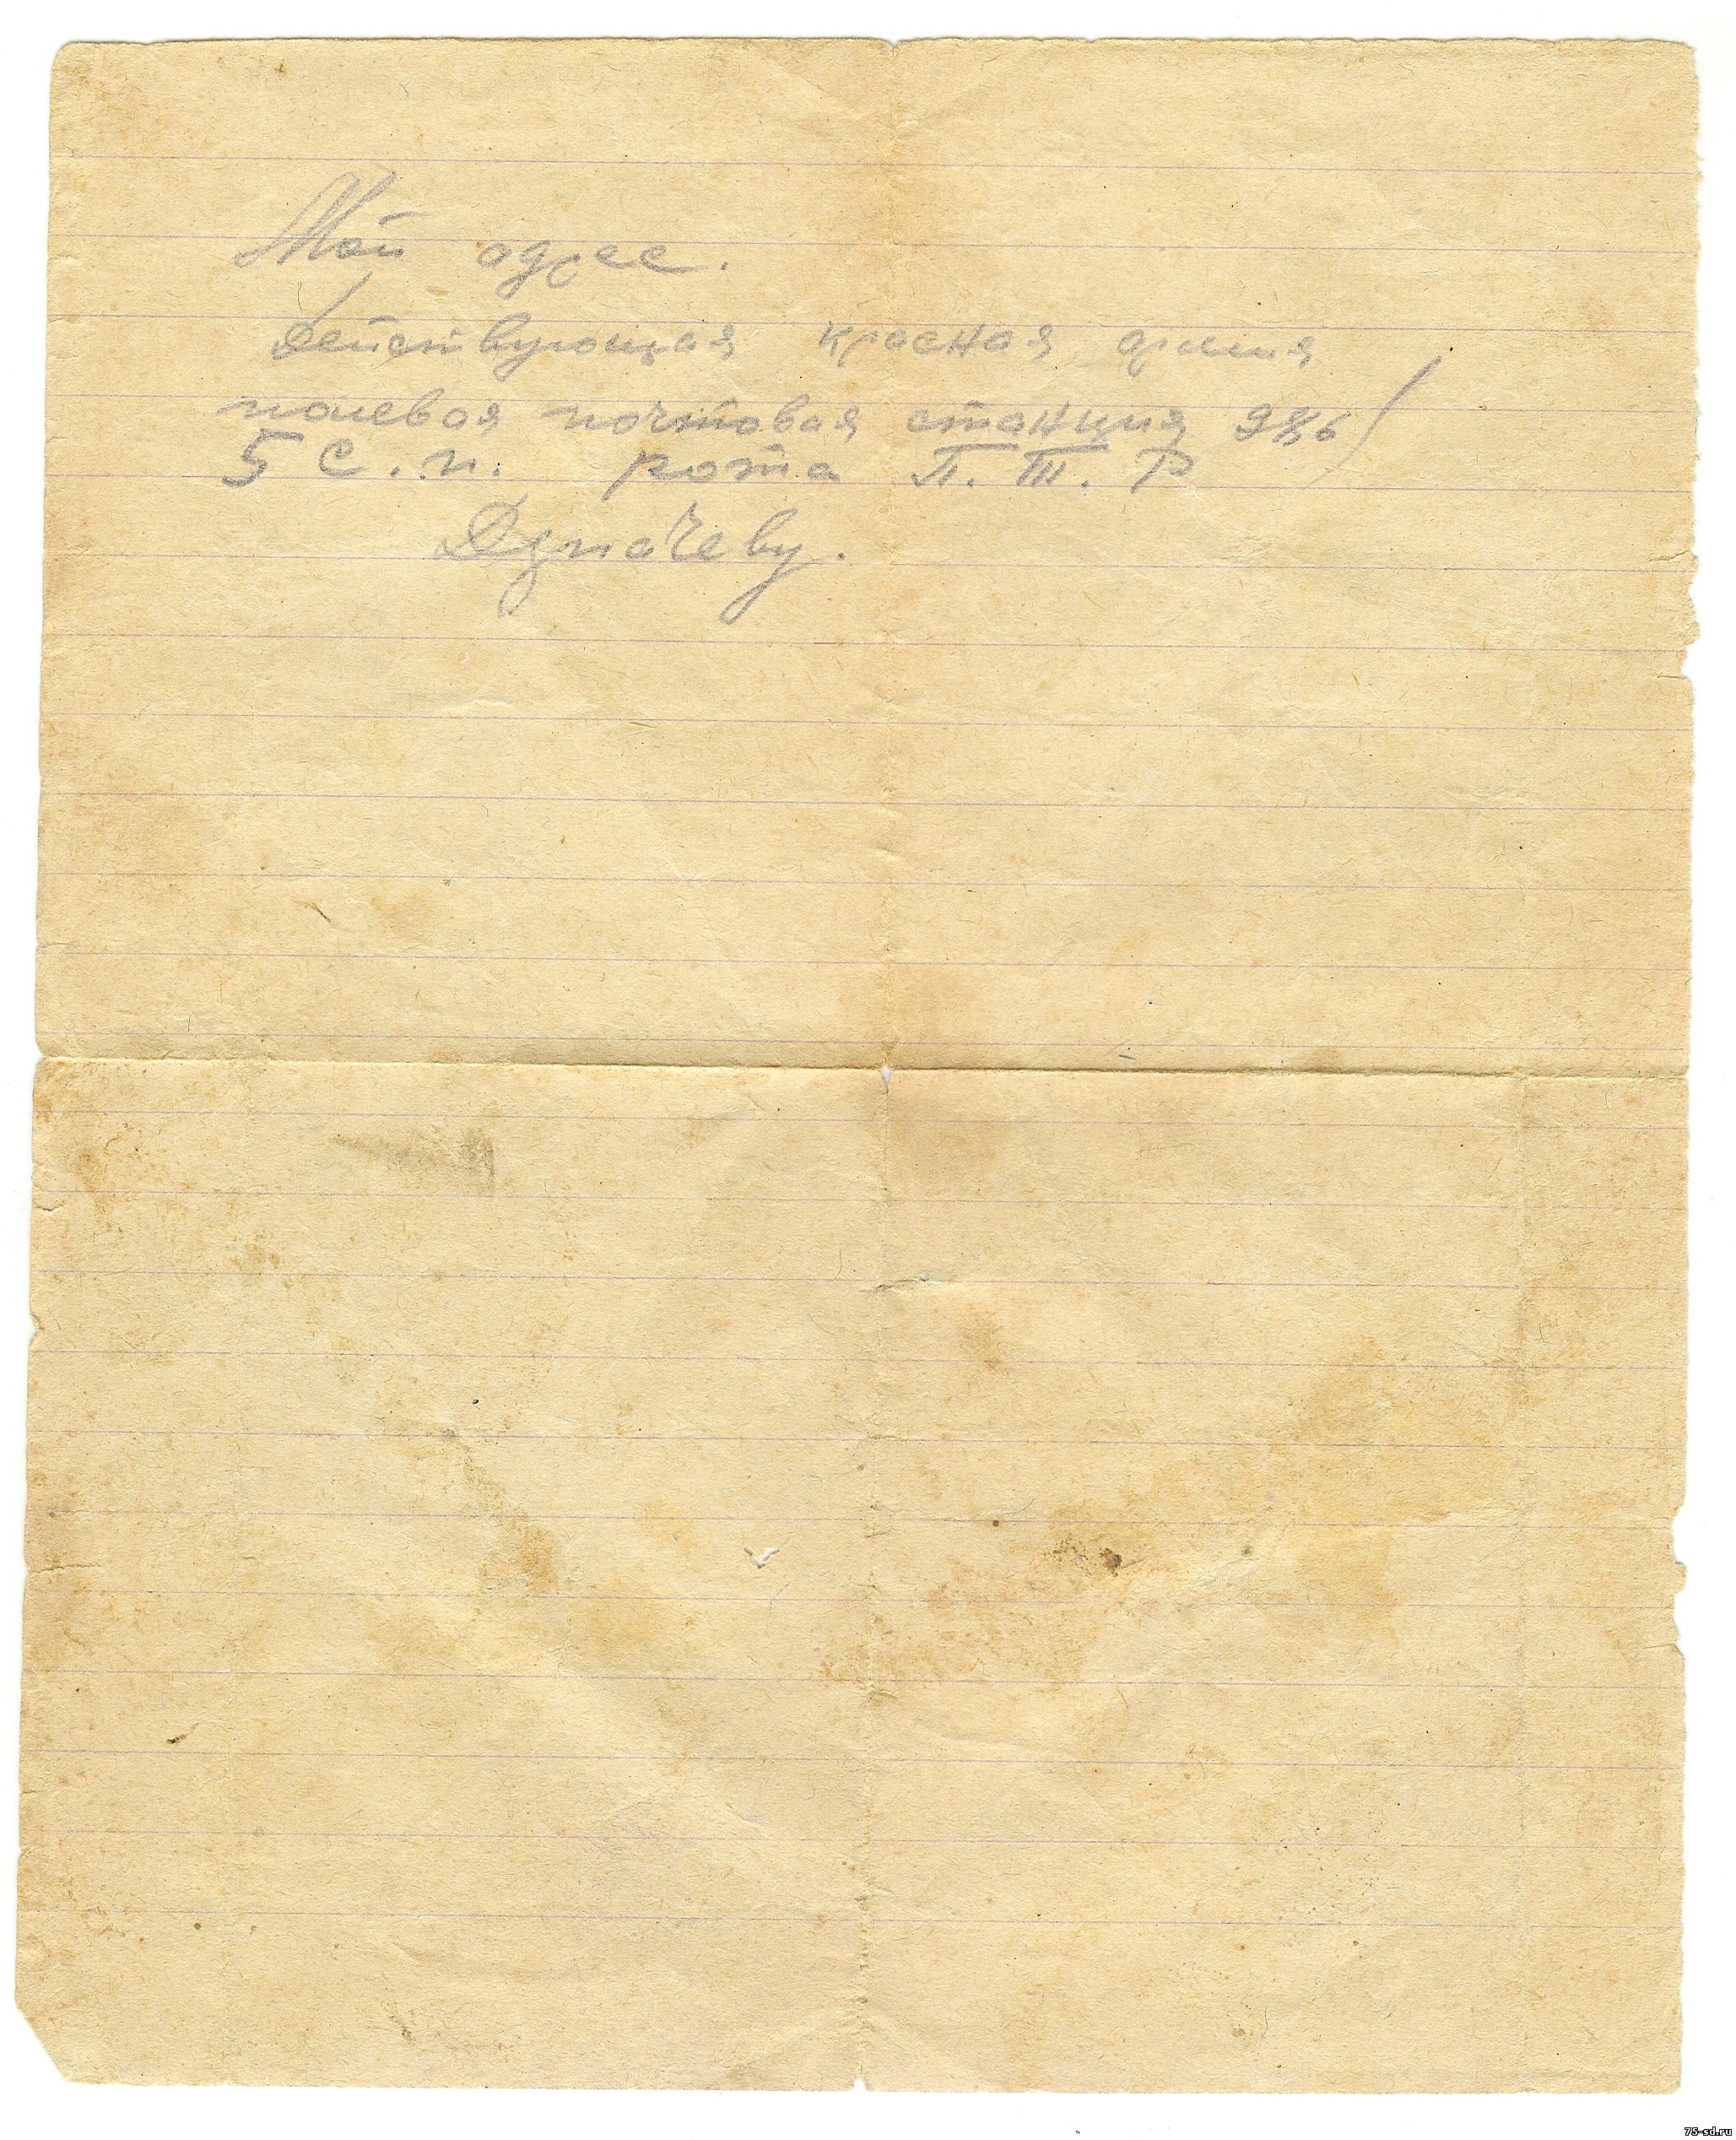 Мой адрес.
действующая красная армия
полевая почтовая станция
5 С. п. рота П. Т. Р
75-sd.ru